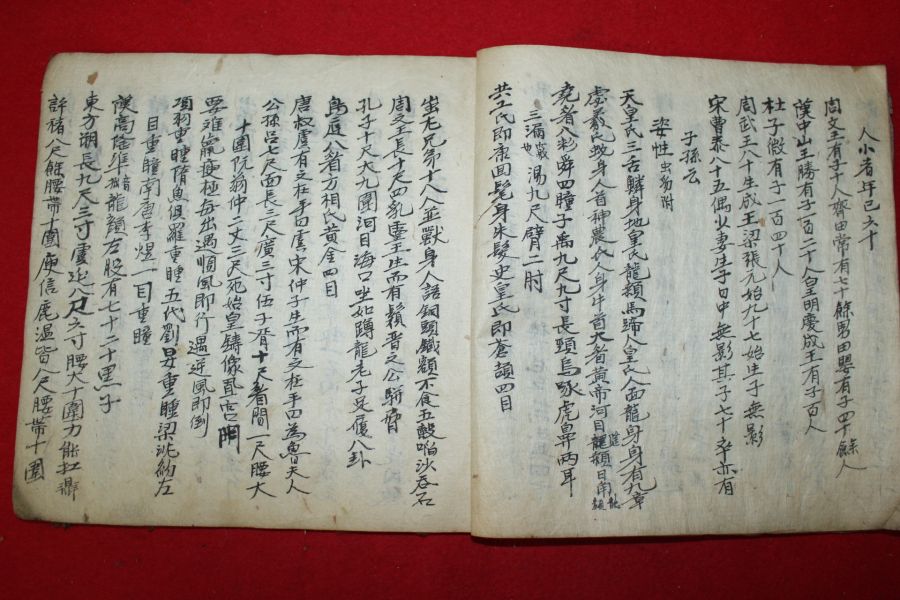 人小者年已六十
周文王有子十人齊田常有七十餘男田嬰有子四十餘人
漢中山王勝有子一百二十人皇明慶成王有子百人
杜子微有子一百四十人
周武王八十生成王梁張元始九十七始生子無影
宋曹泰八十五偶少妻生子日中無影其子七十卒亦有
子孫云
姿性出勇附
天皇氏三舌鱗身地皇氏龍顙馬蹄人皇氏人面龍身身有九章
虙羲氏蛇身人首神農氏人身牛首大者黃帝河目龍顙日角龍顏
堯者八彩舜四瞳子禹九尺九寸長頸烏喙虎鼻兩耳
三漏 湯九尺臂二肘
共工氏即康回髦身朱髮史皇氏即蒼頡四目
蚩尤兄弟十八人並獸身人語銅頭鐵額不食五穀啗沙吞石
周文王長十尺四乳靈王生而有鬚晋文公騈脅
孔子十尺大九圍河目海口坐如蹲龍老子足履八卦
眉庭八者方相氏黃金四目
唐叔虞有文在手曰虞宋仲子生而有文在手曰為魯夫人
公孫呂七尺面長三尺廣三寸伍子胥十尺眉間一尺腰大
十圍阮翁仲二丈三尺死始皇鑄像咸宮門
要離羸疲極每出遇順風即行遇逆風即倒
項羽重瞳隋魚俱羅重瞳五代劉旻重瞳梁沈約左
目重瞳南唐李煜一目重瞳
漢高隆準龍顔左股有七十二黑子
東方朔長九尺三寸虞延八尺六寸腰大十圍力能扛鼎
許褚八尺餘腰帶十圍庾信鹿溫皆八尺腰帶十圍